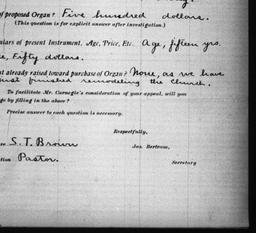 of proposed Organ? Five hundred dollars.
(This question is for explicit answer after investigation.)
ulars of present Instrument, Age, Price, Etc. Age, fifteen yrs.
e, Fifty dollars.
nt already raised toward purchase of Organ? None, as we have
just finished remodeling the Church.
To facilitate Mr. Carnegie's consideration of your appeal, will you
ge by filling in the above?
Precise answer to each question is necessary.
Respectfully,
S. T. Brown
Jas. Bertram,
Pastor.
Secretary